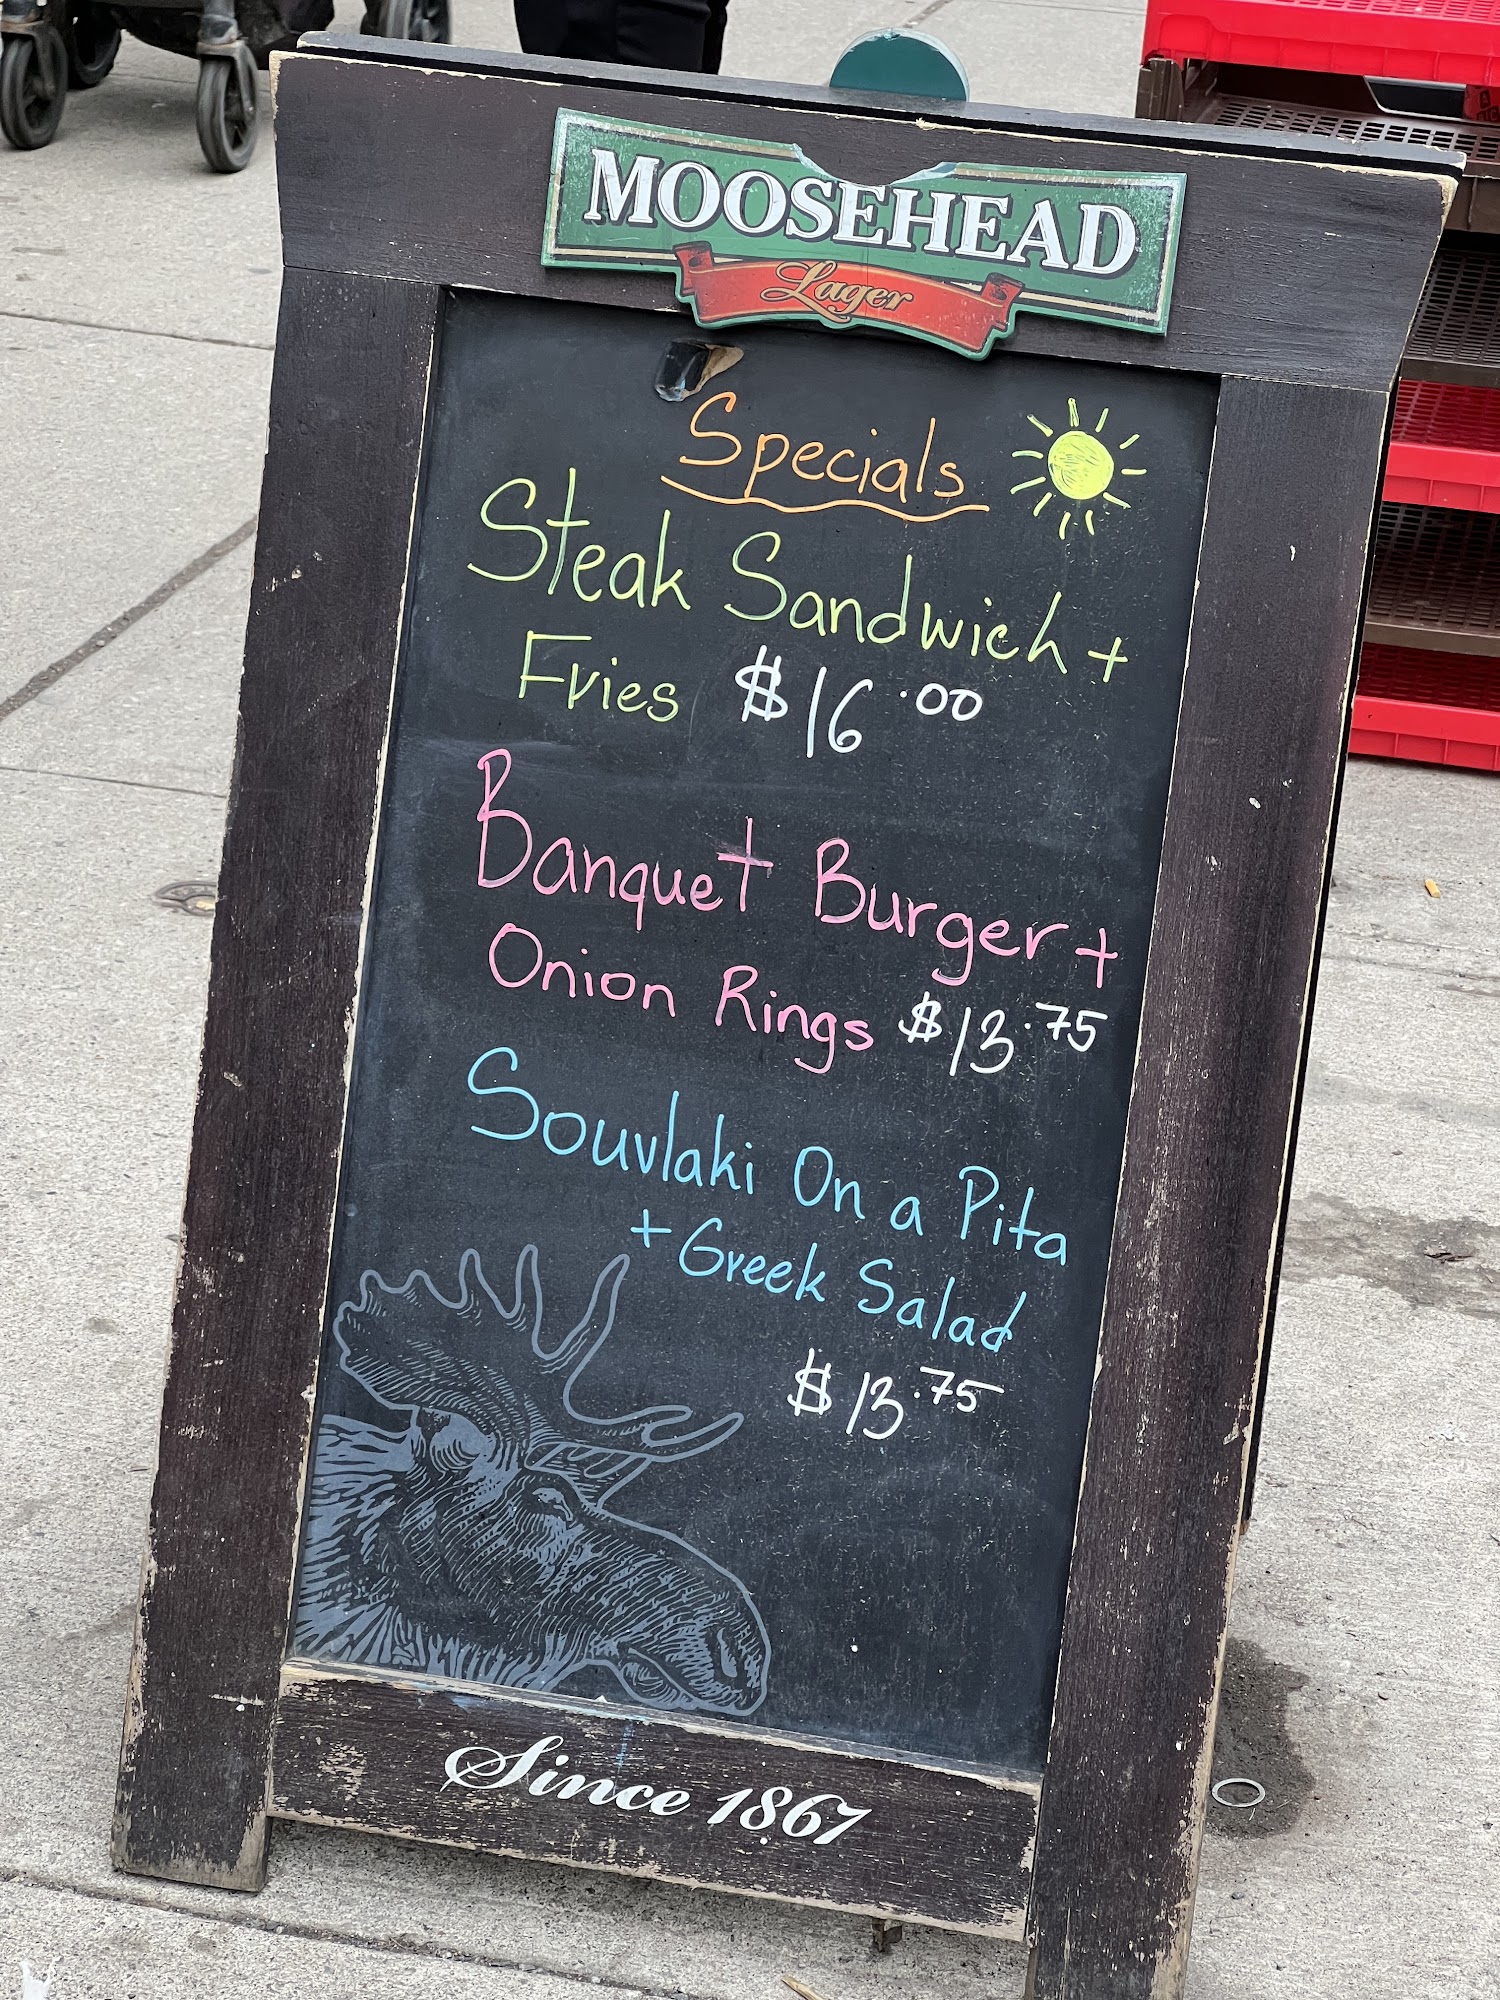 MOOSEHEAD
Lager
Specials
Steak Sandwich +
Fries $16.00
Banquet Burger +
Onion Rings $13.75
Souvlaki On a Pita
+ Greek Salad
$13.75
Since 1867